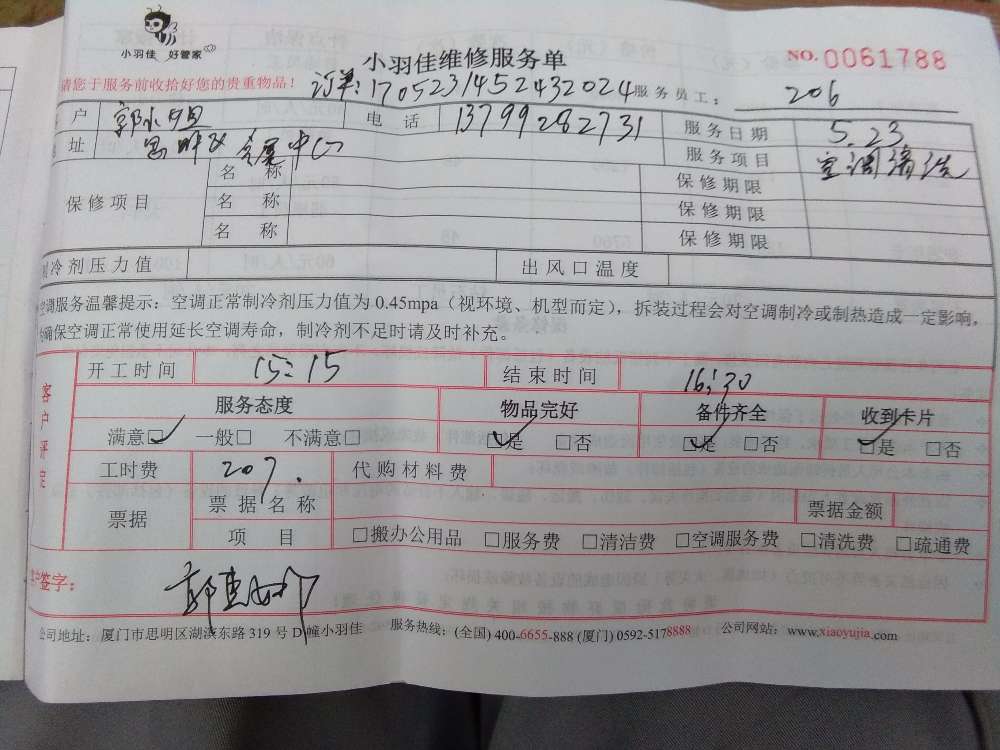 小羽佳 好管家
小羽佳维修服务单
NO.0061788
请您于服务前收拾好您的贵重物品！
订单:1705231452432024
服务员工: 206
户 电话 13799282731 服务日期 5.23
址 思明区会展中心 服务项目 空调清洗
保修项目 名称 保修期限
名称 保修期限
名称 保修期限
制冷剂压力值 出风口温度
空调服务温馨提示：空调正常制冷剂压力值为0.45mpa（视环境、机型而定），拆装过程会对空调制冷或制热造成一定影响，
确保空调正常使用延长空调寿命，制冷剂不足时请及时补充。
客户评定
开工时间 15:15 结束时间 16:30
服务态度 物品完好 备件齐全 收到卡片
满意☑ 一般□ 不满意□ ☑是 □否 ☑是 □否 ☑是 □否
工时费 207. 代购材料费
票据 票据名称 票据金额
项目 □搬办公用品 □服务费 □清洁费 □空调服务费 □清洗费 □疏通费
客户签字：
公司地址：厦门市思明区湖滨东路319号D幢小羽佳 服务热线：(全国) 400-6655-888 (厦门) 0592-5178888 公司网站：www.xiaoyujia.com